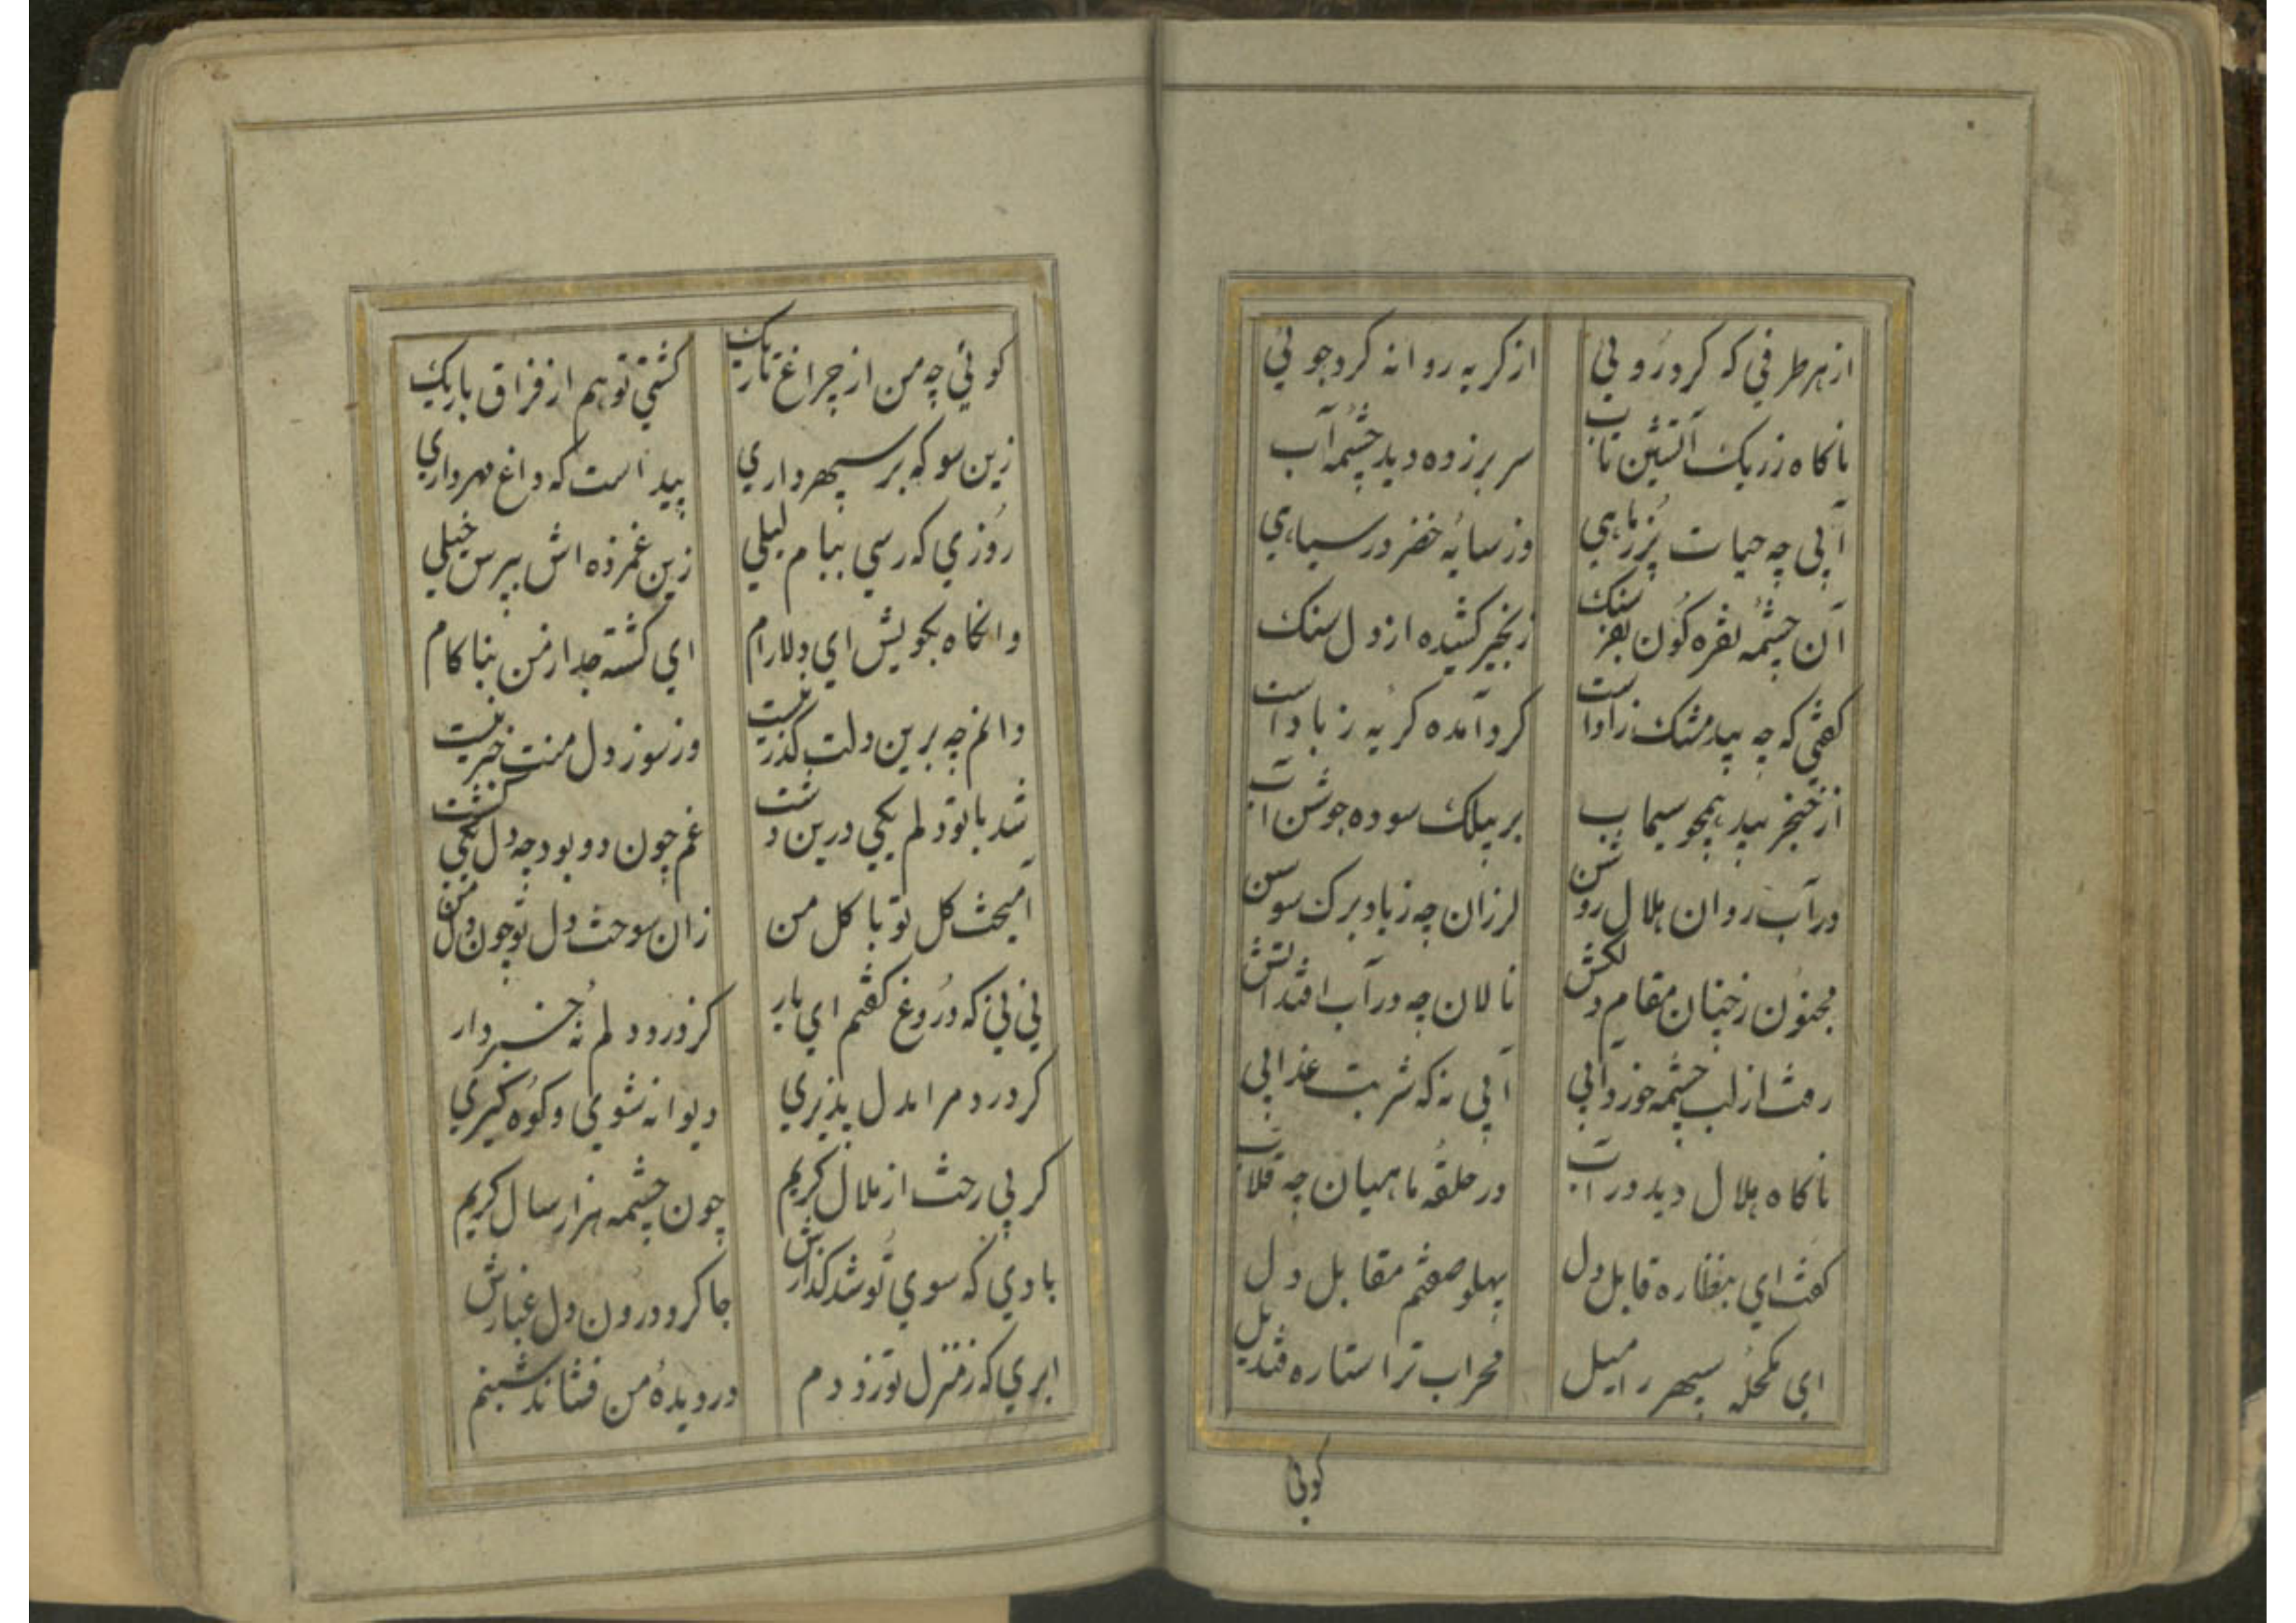 از هر طرفي که کرد روئي از کريه روانه کرد جوئي
ناکاه ز ريک آتشين تاب سر بر زده ديد چشمه آب
آبي چه حيات پر ز ماهي وز سايه خضر در سياهي
آن چشمه نقره کون بفرسنک زنجير کشيده از دل سنک
کفتي که چه بيد مشک زاد است کرد آمده کربه ز باد است
از خنجر بيد همچو سيماب بر بيلک سوده جوشن آب
در آب روان هلال روشن لرزان چه ز باد برک سوسن
مجنون ز چنان مقام دلکش نالان چه در آب افتد اتش
رفت از لب چشمه خورد آبي آبي نه که شربت عذابي
ناکاه هلال ديد در آب در حلقه ماهيان چه قلاب
کفت اي بنظاره قابل دل پهلو صفتم مقابل دل
اي مکحله سپهر را ميل محراب ترا ستاره قنديل
کوئي
کوئي چه من از چراغ تاريک کشتي تو هم از فراق باريک
زين سو که بر سپهر داري پيداست که داغ مهر داري
روزي که رسي ببام ليلي زين غمزده اش بپرس خيلي
وانکاه بکويش اي دلارام اي کشته جدا ز من بناکام
دانم چه برين دلت کذر نيست وز سوز دل منت خبر نيست
شد با تو دلم يکي درين دشت غم چون دو بود چه دل يکي کشت
آميخت کل تو با کل من زان سوخت دل تو چون دل من
ني ني که دروغ کفتم اي يار کز درد دلم نه خبردار
کر درد مرا بدل پذيري ديوانه شوي و کوه کيري
کر بي رخت از ملال کريم چون چشمه هزار سال کريم
بادي که سوي تو شد کذارش جا کرد درون دل غبارش
ابري که ز منزل تو زد دم در ديده من فشاند شبنم